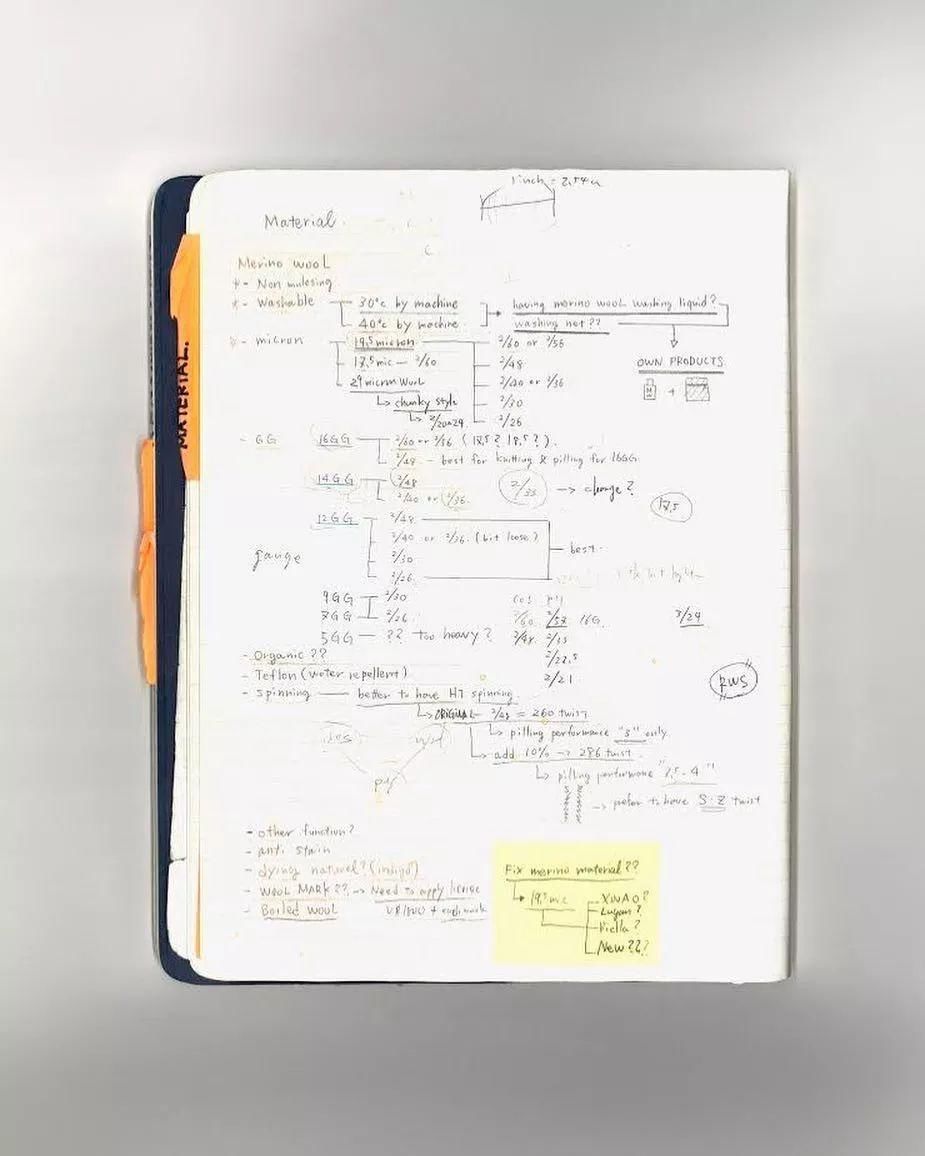 1 inch = 2,54
Material.
MATERIAL.
Merino wool
* - Non mulesing
* - Washable
30°c by machine
40°c by machine
having merino wool washing liquid?
washing net??
OWN PRODUCTS
+
- micron
19,5 micron
2/60 or 2/56
17,5 mic — 2/60
2/48
29 micron wool
2/40 or 2/36
chunky style
2/30
2/26
- GG
16GG
2/60 or 2/56 (17,5? 18,5?).
2/48 - best for knitting & pilling for 16GG.
14GG
2/48
2/40 or 2/36.
2/35
→ change?
17,5
12GG
2/48
2/40 or 2/36. (bit loose)
2/30
2/26
best.
gauge
9GG
2/30
7GG
2/26.
5GG — ?? too heavy?
2/60.
16G.
2/48.
2/22,5
2/21
- Organic??
- Teflon (water repellent)
RWS
- spinning — better to have HT spinning.
ORIGINAL 2/48 = 260 twist
pilling performance "3" only.
add 10% → 286 twist.
pilling performance "3,5 - 4"
→ prefer to have S-Z twist
- other function?
- anti stain
- dying natural? (indigo)
- WOOL MARK?? → Need to apply license
- Boiled wool
Fix merino material??
XINAO?
New???